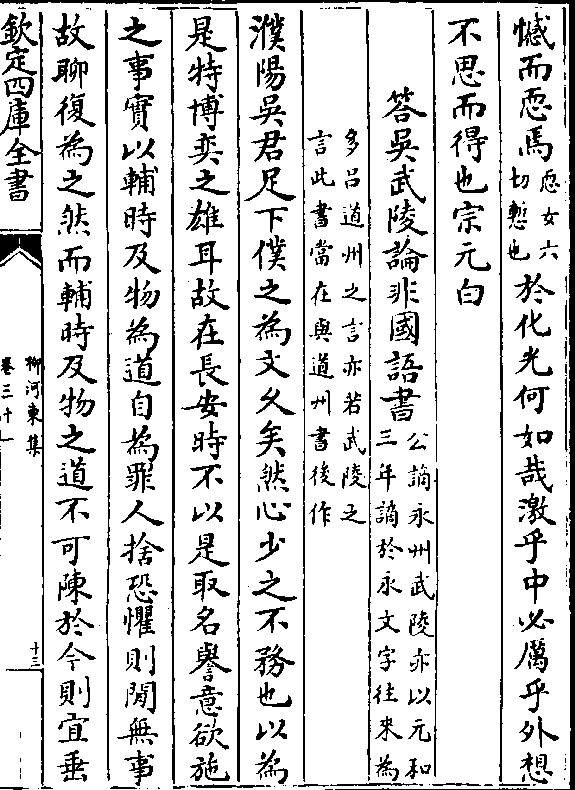 憾而恧焉恧女六切慙也於化光何如哉激乎中必厲乎外想
不思而得也宗元白
答吳武陵論非國語書公謫永州武陵亦以元和三年謫於永文字往來為
多吕道州之言亦若武陵之言此書當在與道州書後作
濮陽吳君足下僕之為文久矣然心少之不務也以為
是特博奕之雄耳故在長安時不以是取名譽意欲施
之事實以輔時及物為道自為罪人捨恐懼則閒無事
故聊復為之然而輔時及物之道不可陳於今則宜垂
欽定四庫全書
柳河東集
卷三十一
十三